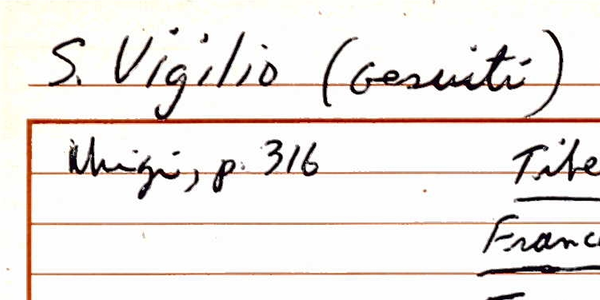 S. Vigilio (Gesuiti)
p. 316
Tibe
Franc